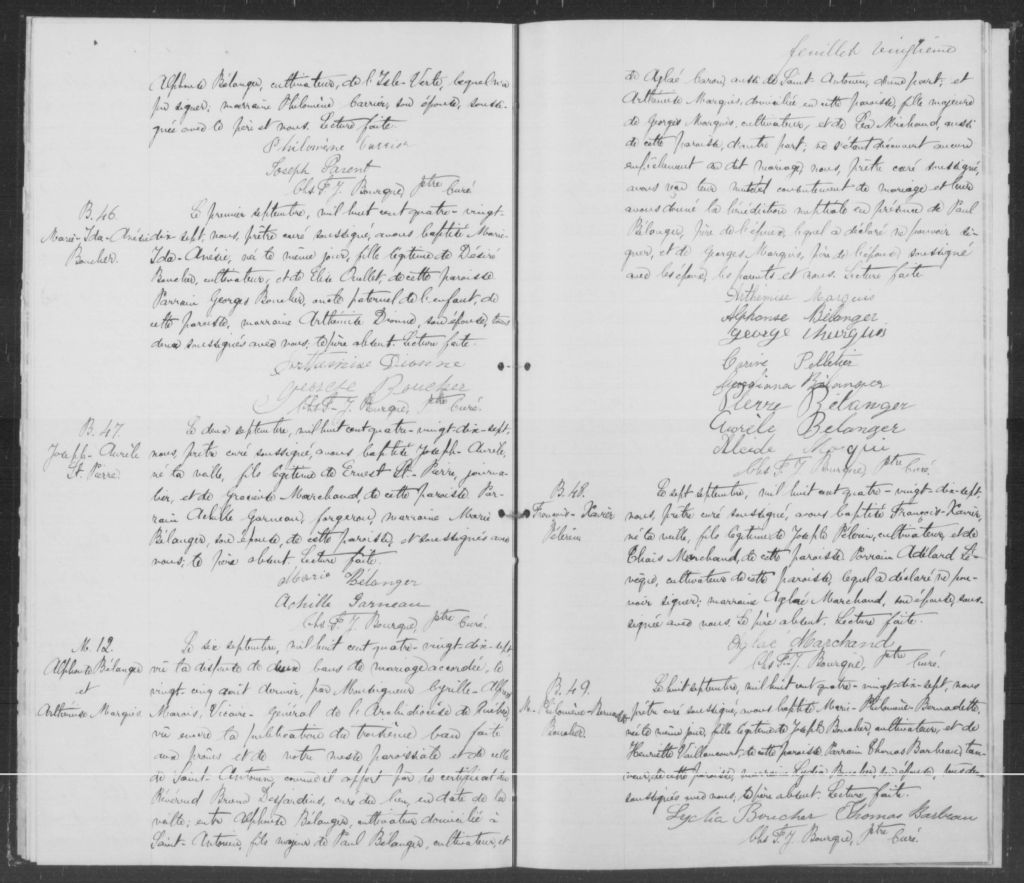 Alphonse Bélanger, cultivateur, de l'Isle-Verte, lequel n'a
pu signer, marraine Philomène Carrier, son épouse, soussi-
gnée avec le père et nous. Lecture faite.
Philomène Carrier
Joseph Parent
Chs F. J. Bourque, Ptre Curé
B. 46.
Marie-Ida-Anésie
Boucher.
Le premier septembre, mil huit cent quatre-vingt-
dix-sept, nous, prêtre curé soussigné, avons baptisé Marie-
Ida-Anésie, née le même jour, fille légitime de Désiré
Boucher, cultivateur, et de Elise Ouellet, de cette paroisse.
Parrain Georges Boucher, oncle paternel de l'enfant, de
cette paroisse, marraine Arthémise Dionne, son épouse, tous
deux soussignés avec nous, le père absent. Lecture faite.
Arthémise Dionne
George Boucher
Chs F. J. Bourque, Ptre Curé.
B. 47.
Joseph-Aurèle
St. Pierre.
Le deux septembre, mil huit cent quatre-vingt-dix-sept,
nous, prêtre curé soussigné, avons baptisé Joseph-Aurèle,
né la veille, fils légitime de Ernest St-Pierre, journa-
lier, et de Gracieuse Marchand, de cette paroisse. Par-
rain Achille Garneau, forgeron, marraine Marie
Bélanger, son épouse, de cette paroisse, et soussignés avec
nous; le père absent. Lecture faite.
Marie Bélanger
Achille Garneau
Chs F. J. Bourque, Ptre Curé.
M. 12.
Alphonse Bélanger
et
Arthémise Marquis
Le six septembre, mil huit cent quatre-vingt-dix-sept
vu la dispense de deux bans de mariage accordée, le
vingt cinq août dernier, par Monseigneur Cyrille-Alfred
Marois, Vicaire-Général de l'Archidiocèse de Québec,
vu encore la publication du troisième ban faite
aux prônes et de notre messe paroissiale et de celle
de Saint-Antonin, comme il appert par le certificat du
Révérend Bruno Desjardins, curé du lieu, en date de la
veille; entre Alphonse Bélanger, cultivateur domicilié à
Saint-Antonin, fils majeur de Paul Bélanger, cultivateur, et
feuillet vingtième
de Aglaé Caron, aussi de Saint-Antonin, d'une part, et
Arthémise Marquis, domiciliée en cette paroisse, fille majeure
de Georges Marquis, cultivateur, et de Léa Michaud, aussi
de cette paroisse, d'autre part; ne s'étant découvert aucun
empêchement au dit mariage, nous, prêtre curé soussigné,
avons reçu leur mutuel consentement de mariage et leur
avons donné la bénédiction nuptiale en présence de Paul
Bélanger, père de l'époux, lequel a déclaré ne pouvoir si-
gner, et de Georges Marquis, père de l'épouse, soussigné
avec les époux, les parents et nous. Lecture faite
Arthémise Marquis
Alphonse Bélanger
George Murquis
Pelletier
Pierre Bélanger
Aurèle Bélanger
Alcide Marquis
Chs F. J. Bourque, Ptre Curé.
B. 48.
François-Xavier
Pélerin
Le sept septembre, mil huit cent quatre-vingt-dix-sept,
nous, prêtre curé soussigné, avons baptisé François-Xavier,
né la veille, fils légitime de Joseph Pélerin, cultivateur, et de
Thaïs Marchand, de cette paroisse. Parrain Adélard Lé-
vêque, cultivateur de cette paroisse, lequel a déclaré ne pou-
voir signer, marraine Aglaé Marchand, son épouse, sous-
signée avec nous. Le père absent. Lecture faite.
Aglaé Marchand
Chs F. J. Bourque, Ptre Curé.
B. 49.
M.-Philomène-Bernadette
Boucher.
Le huit septembre, mil huit cent quatre-vingt-dix-sept, nous
prêtre curé soussigné, avons baptisé Marie-Philomène-Bernadette,
née le même jour, fille légitime de Joseph Boucher, cultivateur, et de
Henriette Vaillancourt, de cette paroisse. Parrain Thomas Barbeau, tan-
neur, de cette paroisse, marraine Lydia Boucher, son épouse, tous deux
soussignés avec nous, le père absent. Lecture faite.
Lydia Boucher Thomas Barbeau
Chs F. J. Bourque, Ptre Curé.